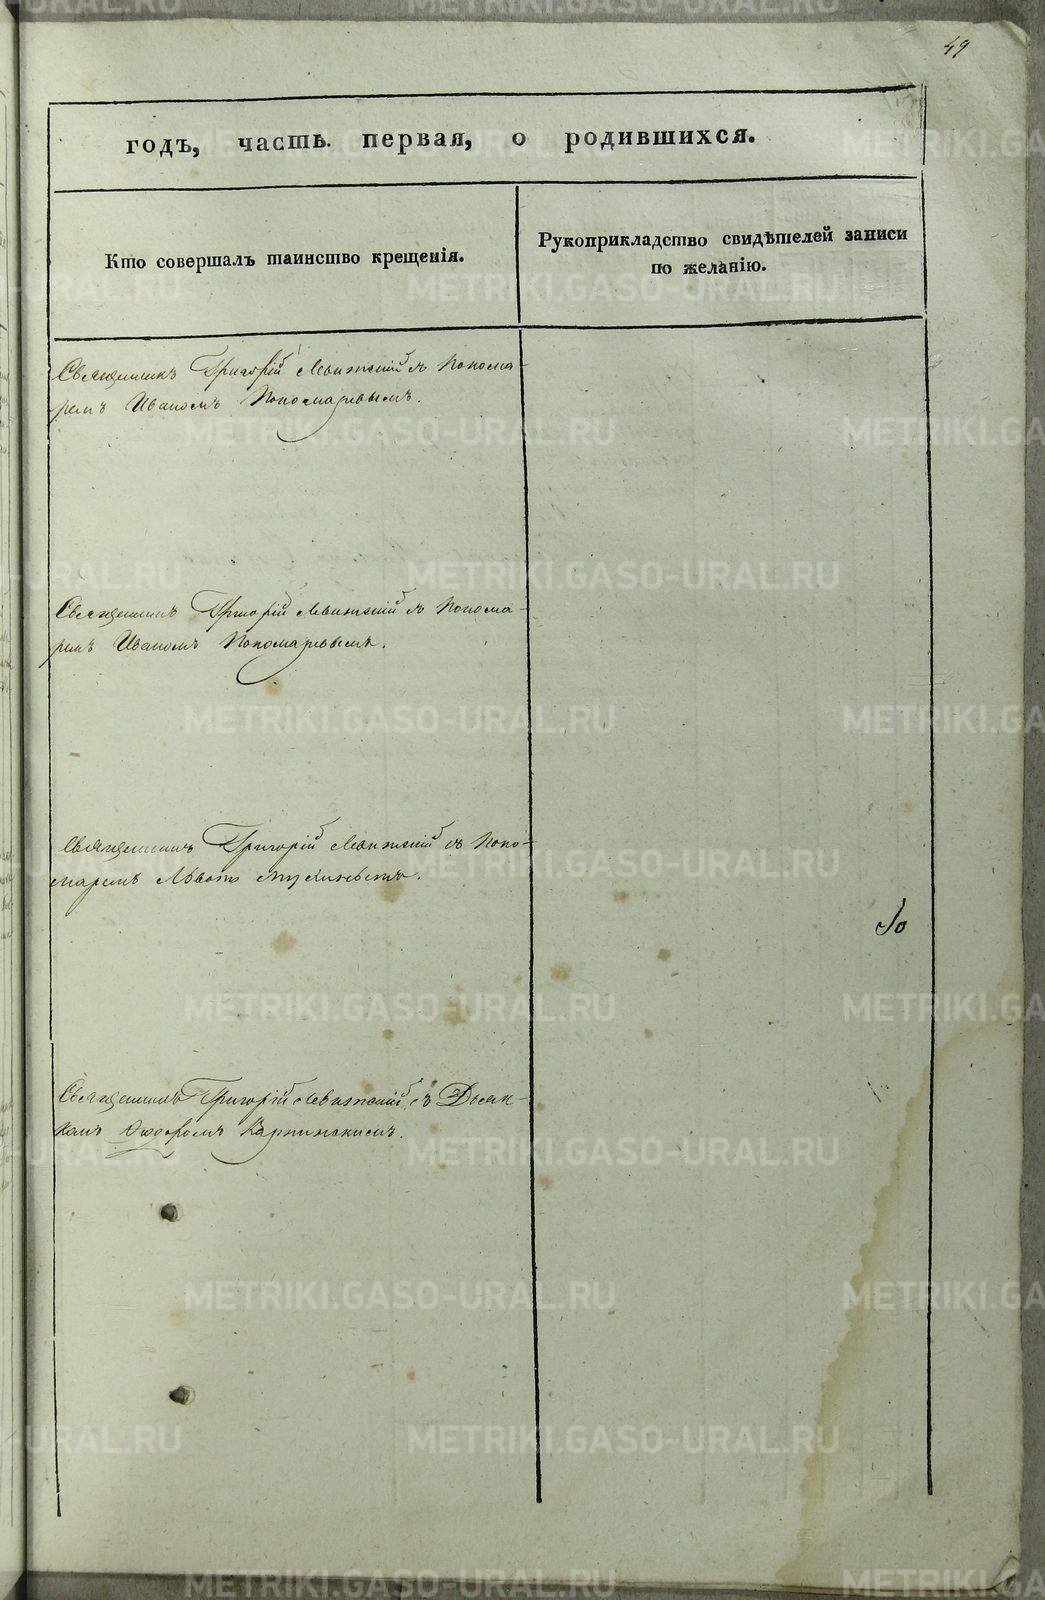 49
годъ, часть первая, о родившихся.
Кто совершалъ таинство крещенія.
Рукоприкладство свидѣтелей записи
по желанію.
Священникъ Григорій Левитскій съ Понома-
ремъ Иваномъ Пономаревымъ.
Священникъ Григорій Левитскій съ Понома-
ремъ Иваномъ Пономаревымъ.
Священникъ Григорій Левитскій съ Поно-
маремъ
Священникъ Григорій Левитскій съ Дьяч-
комъ Ѳеодоромъ Карпинскимъ.
METRIKI.GASO-URAL.RU